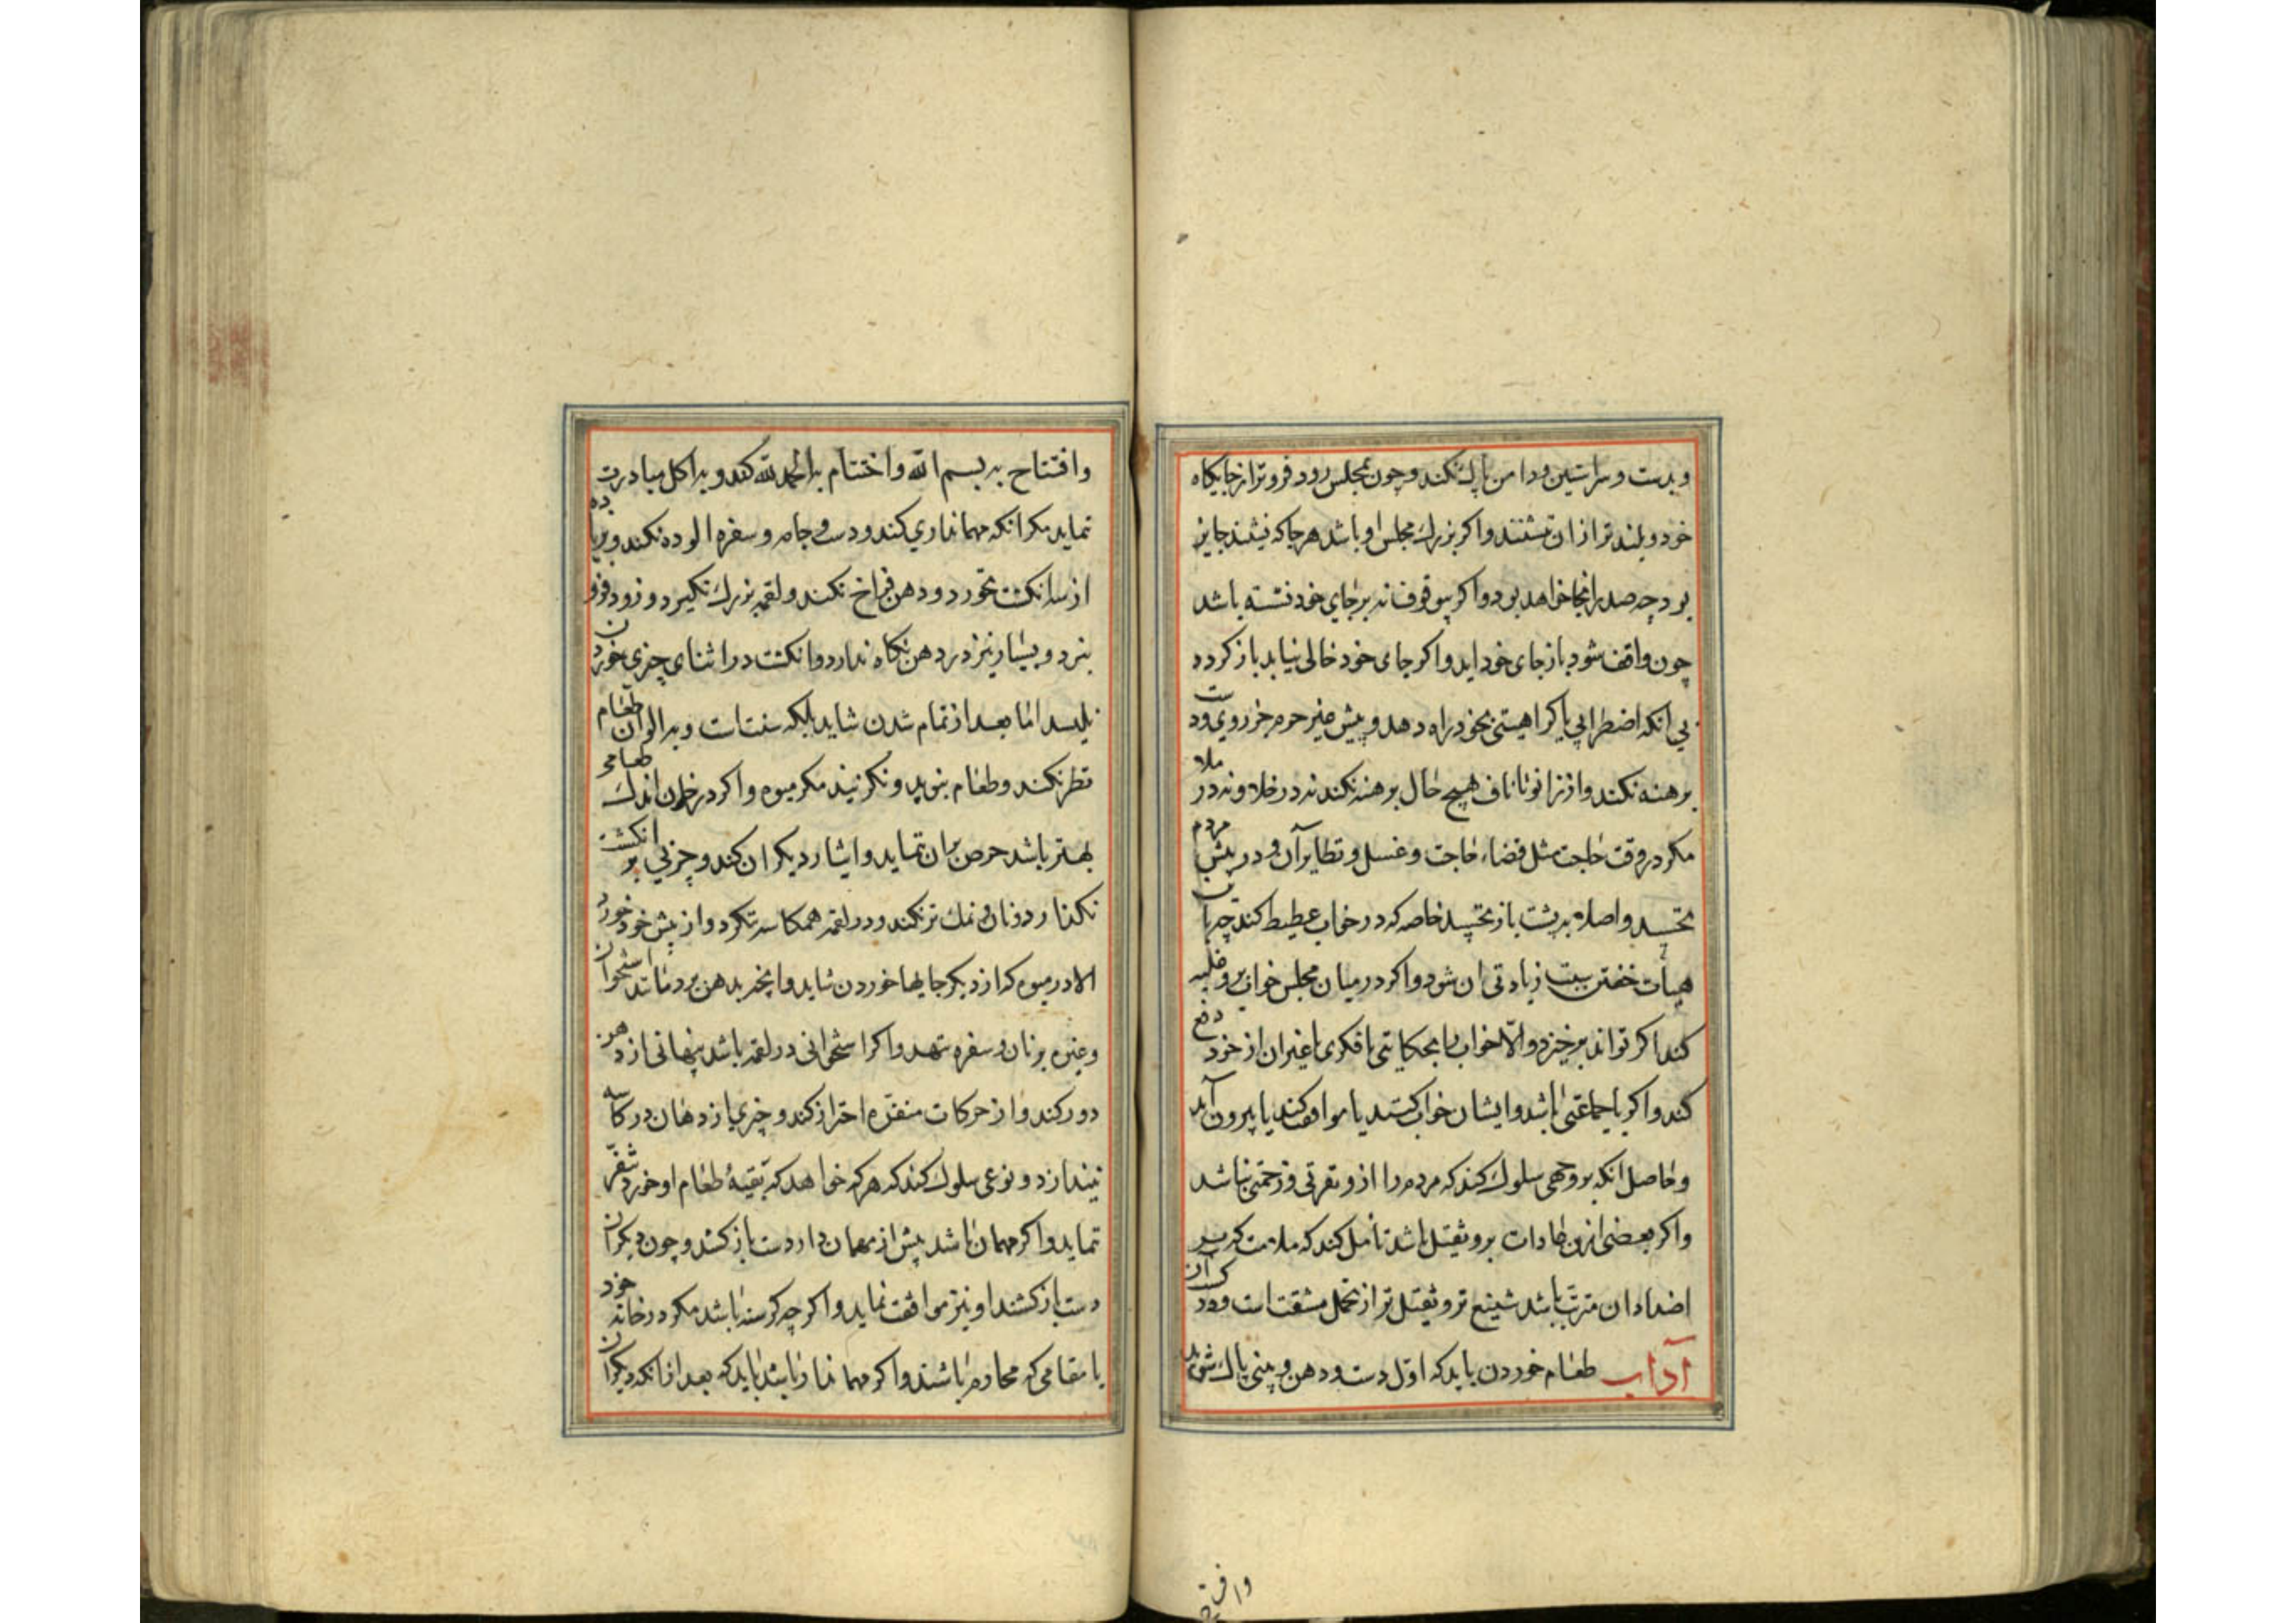 و بدست و سر استین و دامن پاك نكند و چون بمجلس رود فروتر از جایكاه
خود و بلندتر از ان ننشنند و اكر بزرك مجلس او باشد هر جا كه نشیند جایز
بود چه صدر انجا خواهد بود و اكر بیوقوف نه بر جای خود نشسته باشد
چون واقف شود باز جای خود اید و اكر جای خود خالی نیابد باز كردد
بی انكه اضطرابی یا كراهیتی بخود راه دهد و پیش غیر حرم جز روی و دست
برهنه نكند و از زانو تا ناف هیچ حال برهنه نكند نه در خلا و نه در ملا
مكر در وقت حاجت مثل قضاء حاجت و غسل و نظایر آن و در پیش مردم
نخسبد و اصلا بر پشت باز نخسپد خاصه كه در خواب غطیط كند چه بآن
هیأت خفتن سبب زیادتی ان شود و اكر در میان مجلس خواب برو غلبه
كند اكر تواند بر خیزد و الّا خواب با بحكایتی یا فكری یا غیر ان از خود دفع
كند و اكر با جماعتی باشد و ایشان خواب كنند یا موافقت كند یا بیرون آید
و حاصل انكه بر وجهی سلوك كند كه مردم را ازو نفرتی و زحمتی نباشد
و اكر بعضی ازین عادات برو ثقیل باشد تامل كند كه ملامت كه بر
اضداد ان مترتب باشد شنیع تر و ثقیل تر از تحمل مشقت است و در كسب ان
آداب طعام خوردن باید كه اول دست و دهن و بینی پاك بشوید
وافتتاح
و افتتاح به بسم الله و اختتام به الحمد لله كند و به اكل مبادرت
ننماید مكر انكه مهمانداری كند و دست و جامه و سفره الوده نكند و بزیاده
از سه انكشت نخورد و دهن فراخ نكند و لقمه بزرك نكیرد و زود فرو
نبرد و بسیار نیز در دهن نكاه ندارد و انكشت در اثنای چیزی خوردن
نلیسد اما بعد از تمام شدن شاید بلكه سنت است و به الوان طعام
نظر نكند و طعام نبوید و نكزیند مكر میوه و اكر در خوان اندك طعامی
بهتر باشد حرص بر ان ننماید و ایثار دیكران كند و چربی بر انكشت
نكذارد و نان و نمك تر نكند و در لقمه همكاسه ننكرد و از پیش خود خورد
الا در میوه كه از دیكر جایها خوردن شاید و انچه بدهن برد مانند استخوان
و غیره بر نان و سفره ننهد و اكر استخوانی در لقمه باشد پنهانی از دهن
دور كند و از حركات منفره احتراز كند و چیزی از دهان در كاسه
نیندازد و نوعی سلوك كند كه هر كه خواهد كه بقیهٔ طعام او خورد تنفر
ننماید و اكر مهمان باشد پیش از مهماندار دست باز نكشد و چون دیكران
دست باز كشند او نیز موافقت نماید و اكر چه كرسنه باشد مكر در خانه خود
یا مقامی كه محارم باشند و اكر مهماندار باشد باید كه بعد از انكه دیكران